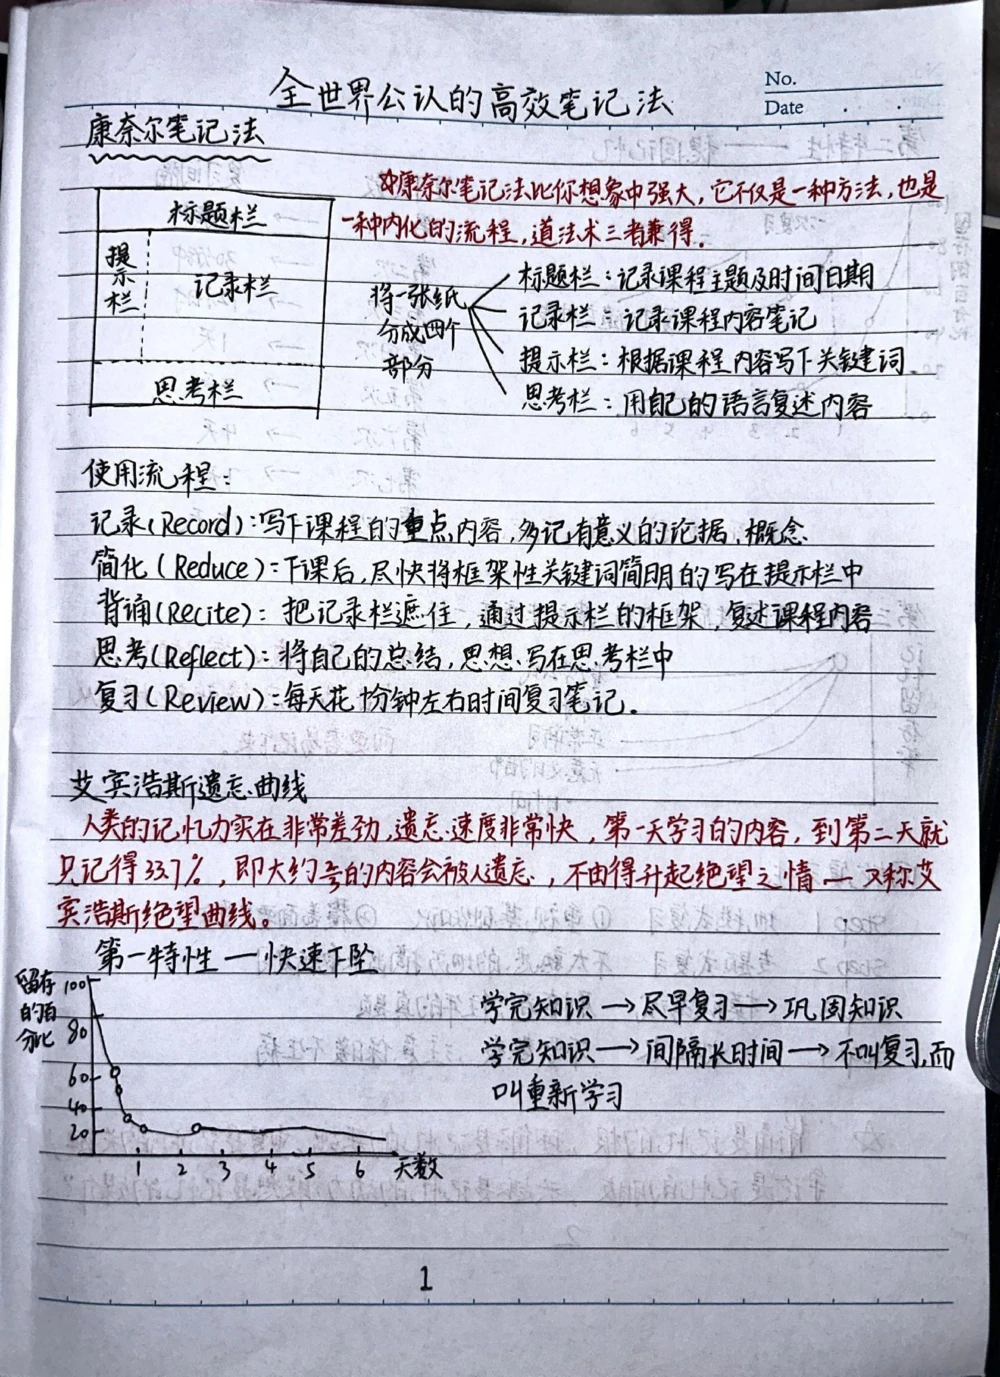 全世界公认的高效笔记法
No.
Date
康奈尔笔记法
康奈尔笔记法比你想象中强大，它不仅是一种方法，也是
一种内化的流程，道法术三者兼得.
标题栏
提示栏
记录栏
思考栏
将一张纸
分成四个
部分
标题栏：记录课程主题及时间日期
记录栏：记录课程内容笔记
提示栏：根据课程内容写下关键词.
思考栏：用自己的语言复述内容
使用流程：
记录(Record)：写下课程的重点内容，多记有意义的论据、概念
简化(Reduce)：下课后，尽快将框架性关键词简明的写在提示栏中
背诵(Recite)：把记录栏遮住，通过提示栏的框架，复述课程内容
思考(Reflect)：将自己的总结，思想.写在思考栏中
复习(Review)：每天花十分钟左右时间复习笔记.
艾宾浩斯遗忘曲线
人类的记忆力实在非常差劲，遗忘速度非常快，第一天学习的内容，到第二天就
只记得33.7%，即大约⅔的内容会被人遗忘，不由得升起绝望之情—又称艾
宾浩斯绝望曲线。
第一特性—快速下坠
留存
的百
分比
100
80
60
40
20
1 2 3 4 5 6 天数
学完知识→尽早复习→巩固知识
学完知识→间隔长时间→不叫复习,而
叫重新学习
1